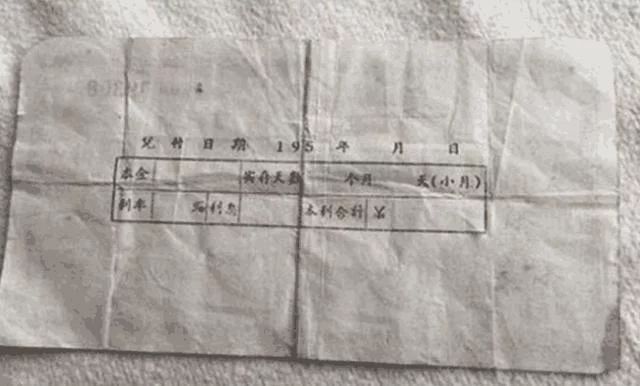 兑付日期 195 年 月 日
本金 实存天数 个月 天(小月)
利率 % 利息 本利合计 ¥